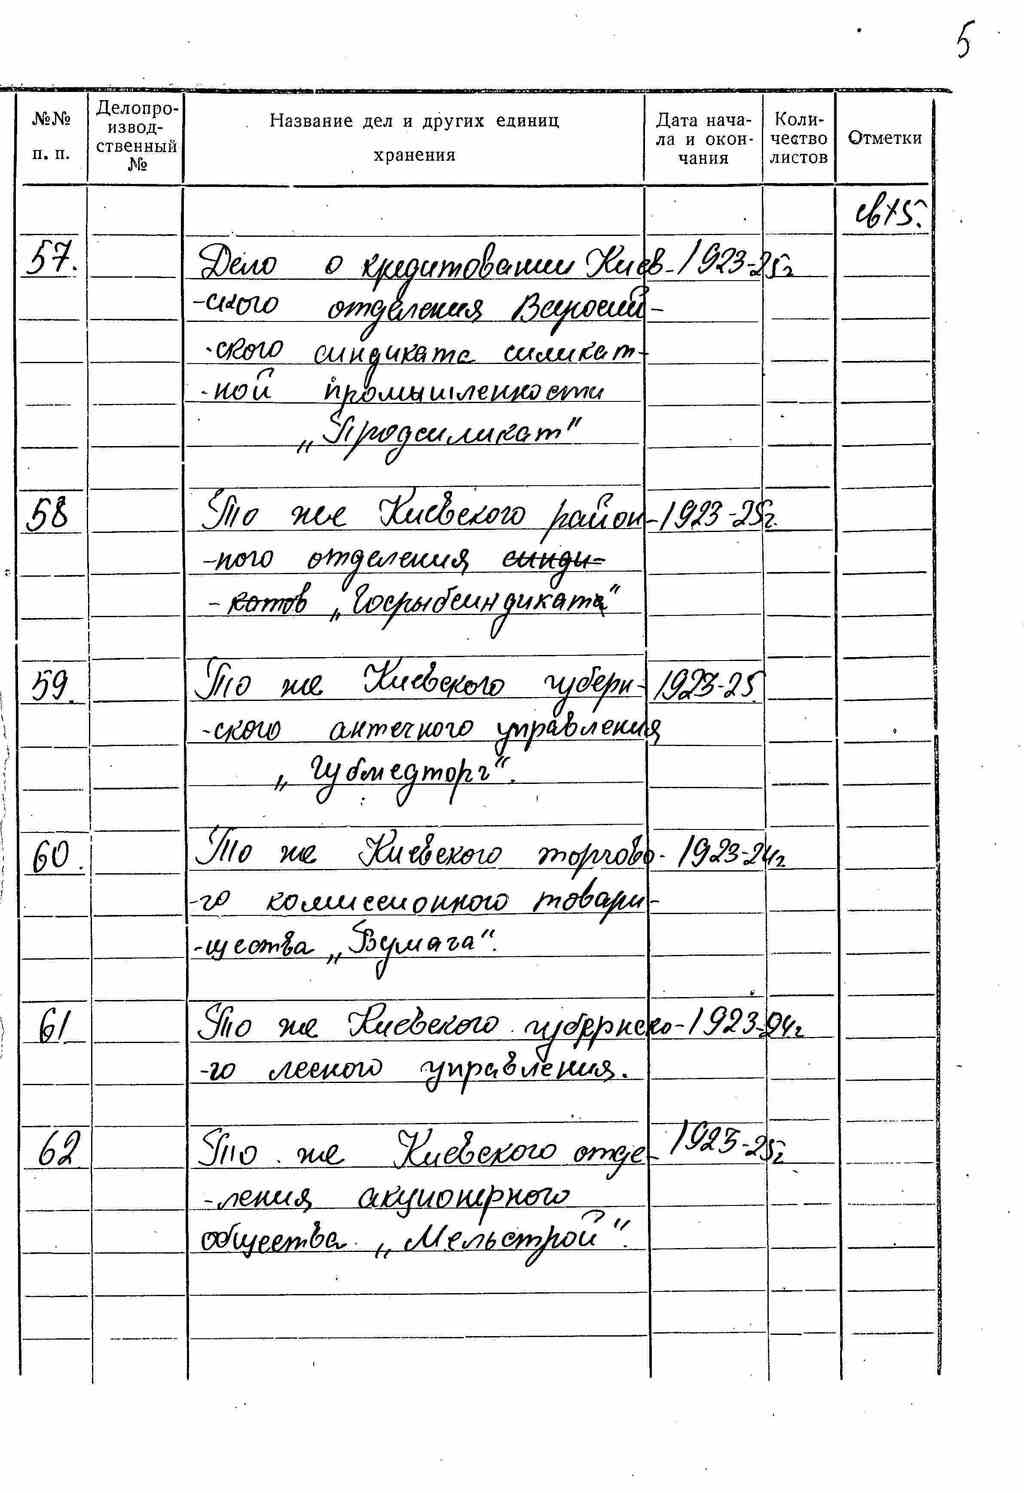 5
№№ п. п. Делопроизводственный № Название дел и других единиц хранения Дата начала и окончания Количество листов Отметки
57. Дело о кредитовании Киев- 1923-25г
-ского отделения Всеросий-
-ского синдиката силикат-
-ной промышленности
„Продсиликат"
58 То же Киевского район- 1923-25г.
-ного отделения синди-
-катов „Госрыбсиндиката"
59. То же Киевского губерн- 1923-25
-ского аптечного управления
„Губмедторг".
60. То же Киевского торгово- 1923-24г
-го комиссионного товари-
-щества „Бумага".
61 То же Киевского губернско- 1923-24г
-го лесного управления.
62 То же Киевского отде- 1923-25г
-ления акционерного
общества „Мельстрой".